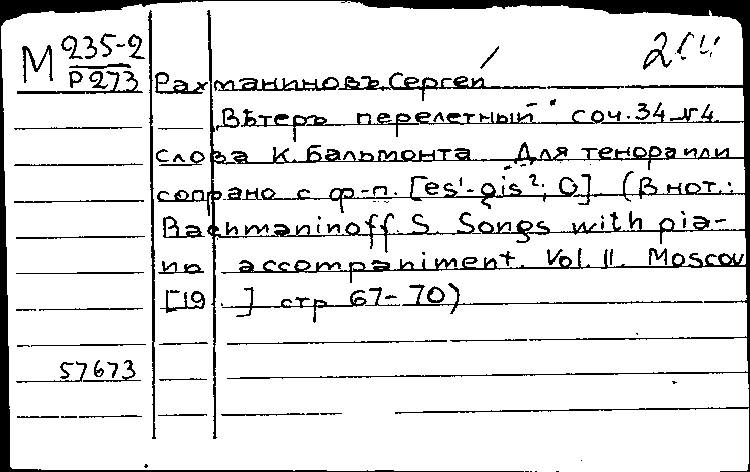 М 235-2
Р273
Рахманиновъ, Сергей
„Вѣтеръ перелетный" соч. 34 №4
слова К. Бальмонта Для тенора или
сопрано с ф-п. [es¹-gis²; O] (В нот.:
Rachmaninoff S. Songs with pia-
no accompaniment. Vol. II. Moscow
[19 . ] стр 67-70)
57673